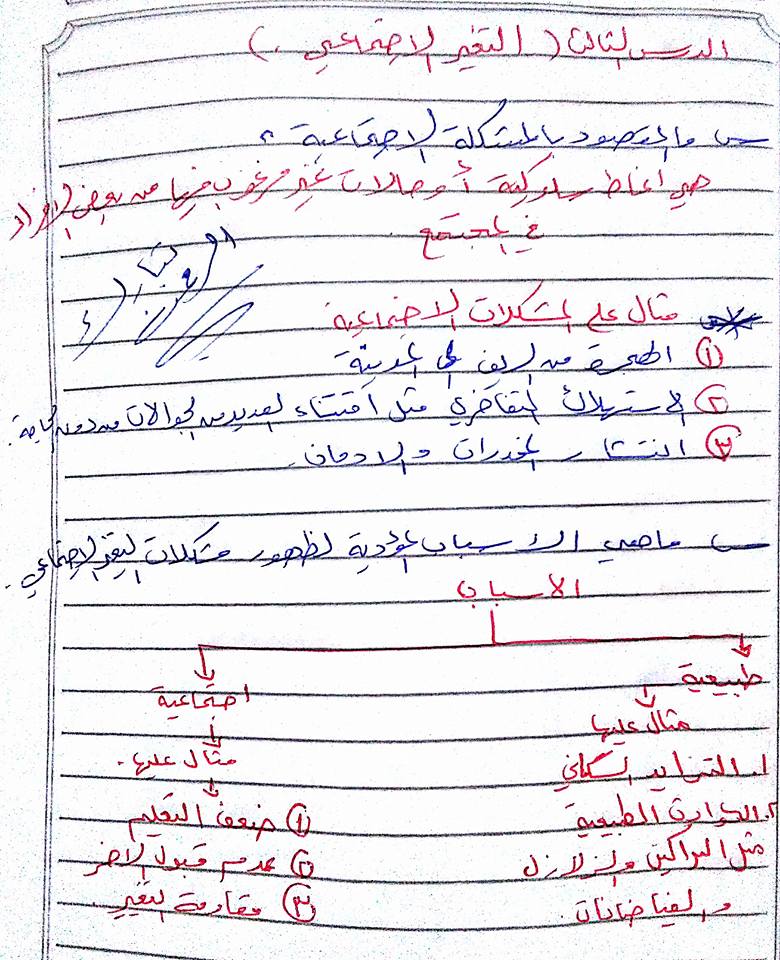 الدرس الثالث ( التغير الاجتماعي . )
س ما المقصود بالمشكلة الاجتماعية ؟
هي انماط سلوكية أو حالات غير مرغوب فيها من بعض الافراد
في المجتمع
مثال على المشكلات الاجتماعية
① الهجرة من الريف الى المدينة
② الاستهلاك التفاخري مثل اقتناء العديد من الجوالات من دون حاجة .
③ انتشار المخدرات والادمان .
س ماهي الاسباب المؤدية لظهور مشكلات التغير الاجتماعي .
الاسباب
طبيعية
مثال عليها
١. التزايد السكاني
٢. الكوارث الطبيعية
مثل البراكين والزلازل
والفياضانات .
اجتماعية
مثال عليها .
① ضعف التعليم
② عدم قبول الاخر
③ مقاومة التغير .